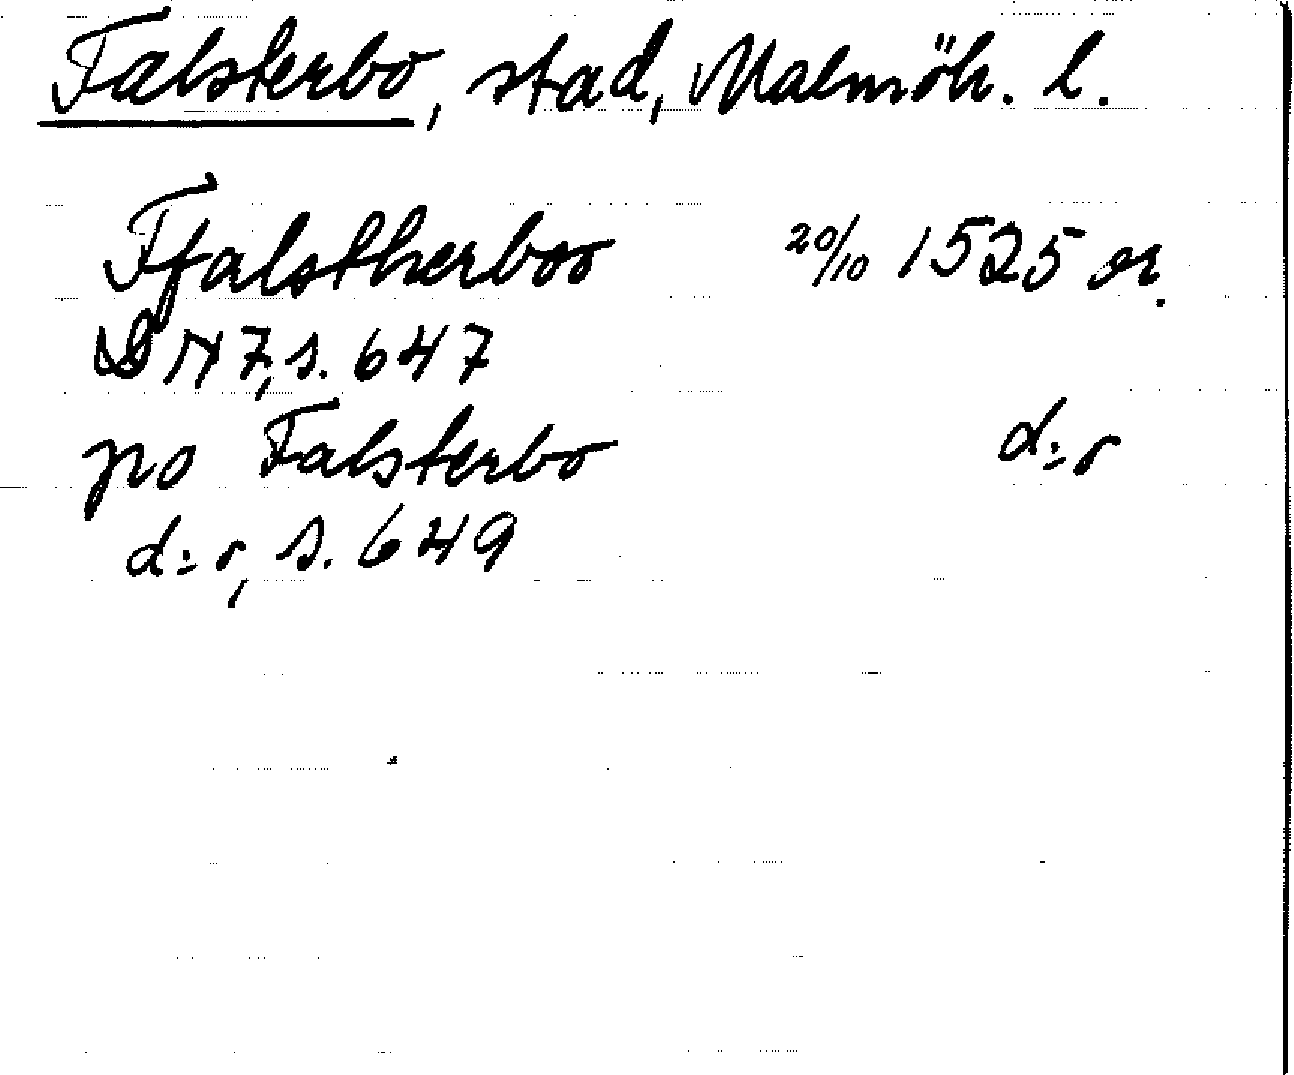 Falsterbo, stad, Malmöh. l.
Ffalstherboo 20/10 1525 or.
DN 7, s. 647
po Falsterbo d:o
d:o, s. 649